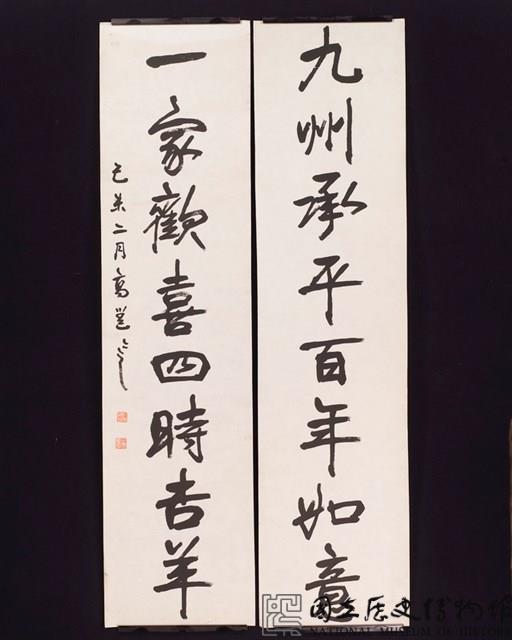 九州承平百年如意
一家歡喜四時吉羊
己未二月高邕
國立歷史博物館
NATIONAL MUSEUM